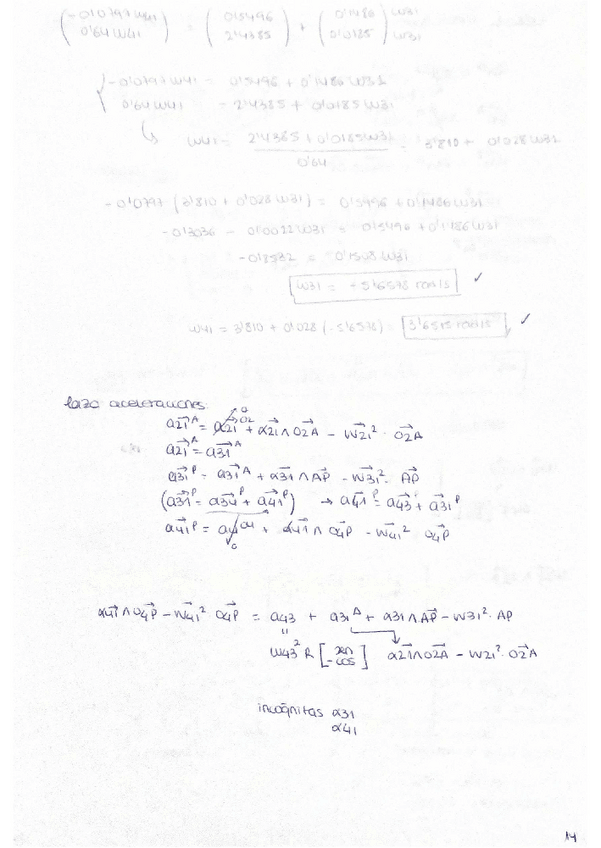 (-0'0797 w41 / 0'64 w41) = (0'5496 / 2'4385) + (0'1486 / 0'0185) w31 w31
-0'0797 w41 = 0'5496 + 0'1486 w31
0'64 w41 = 2'4385 + 0'0185 w31
↳ w41 = (2'4385 + 0'0185 w31) / 0'64 = 3'810 + 0'028 w31
-0'0797 (3'810 + 0'028 w31) = 0'5496 + 0'1486 w31
-0'3036 - 0'0022 w31 = 0'5496 + 0'1486 w31
-0'8532 = 0'1508 w31
w31 = -5'6578 rad/s ✓
w41 = 3'810 + 0'028 (-5'6578) = 3'6515 rad/s ✓
lazo aceleraciones:
a21^A = a21^O2 + α21 ∧ O2A - w21² · O2A
a21^A = a31^A
a31^P = a31^A + α31 ∧ AP - w31² · AP
(a31^P = a34^P + a41^P) → a41^P = a43 + a31^P
a41^P = a41^O4 + α41 ∧ O4P - w41² O4P
α41 ∧ O4P - w41² O4P = a43 + a31^A + α31 ∧ AP - w31² · AP
w43² R [sen / -cos] α21 ∧ O2A - w21² · O2A
incógnitas α31
α41
14